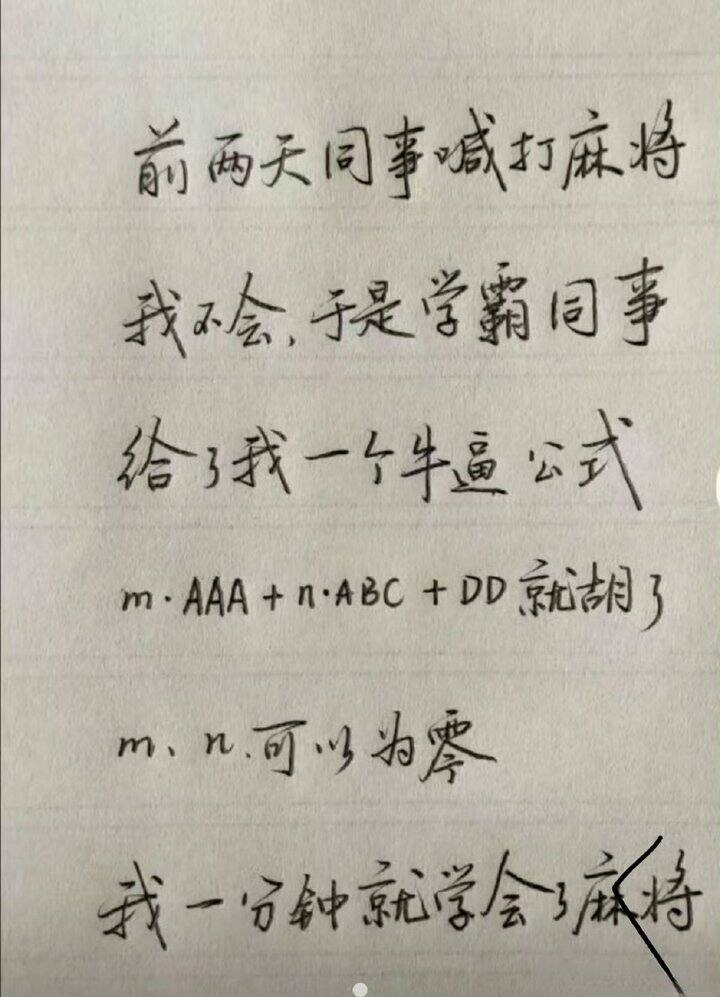 前两天同事喊打麻将
我不会,于是学霸同事
给了我一个牛逼公式
m·AAA+n·ABC+DD就胡了
m、n.可以为零
我一分钟就学会了麻将